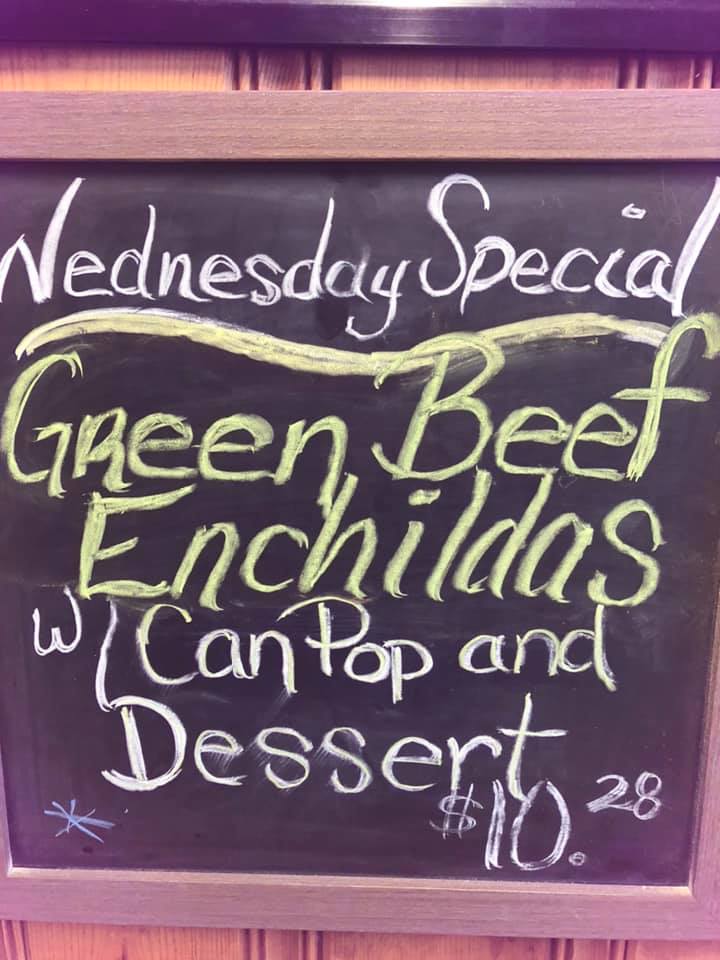 Wednesday Special
Green Beef
Enchildas
w/ Can Pop and
Dessert
$10.28